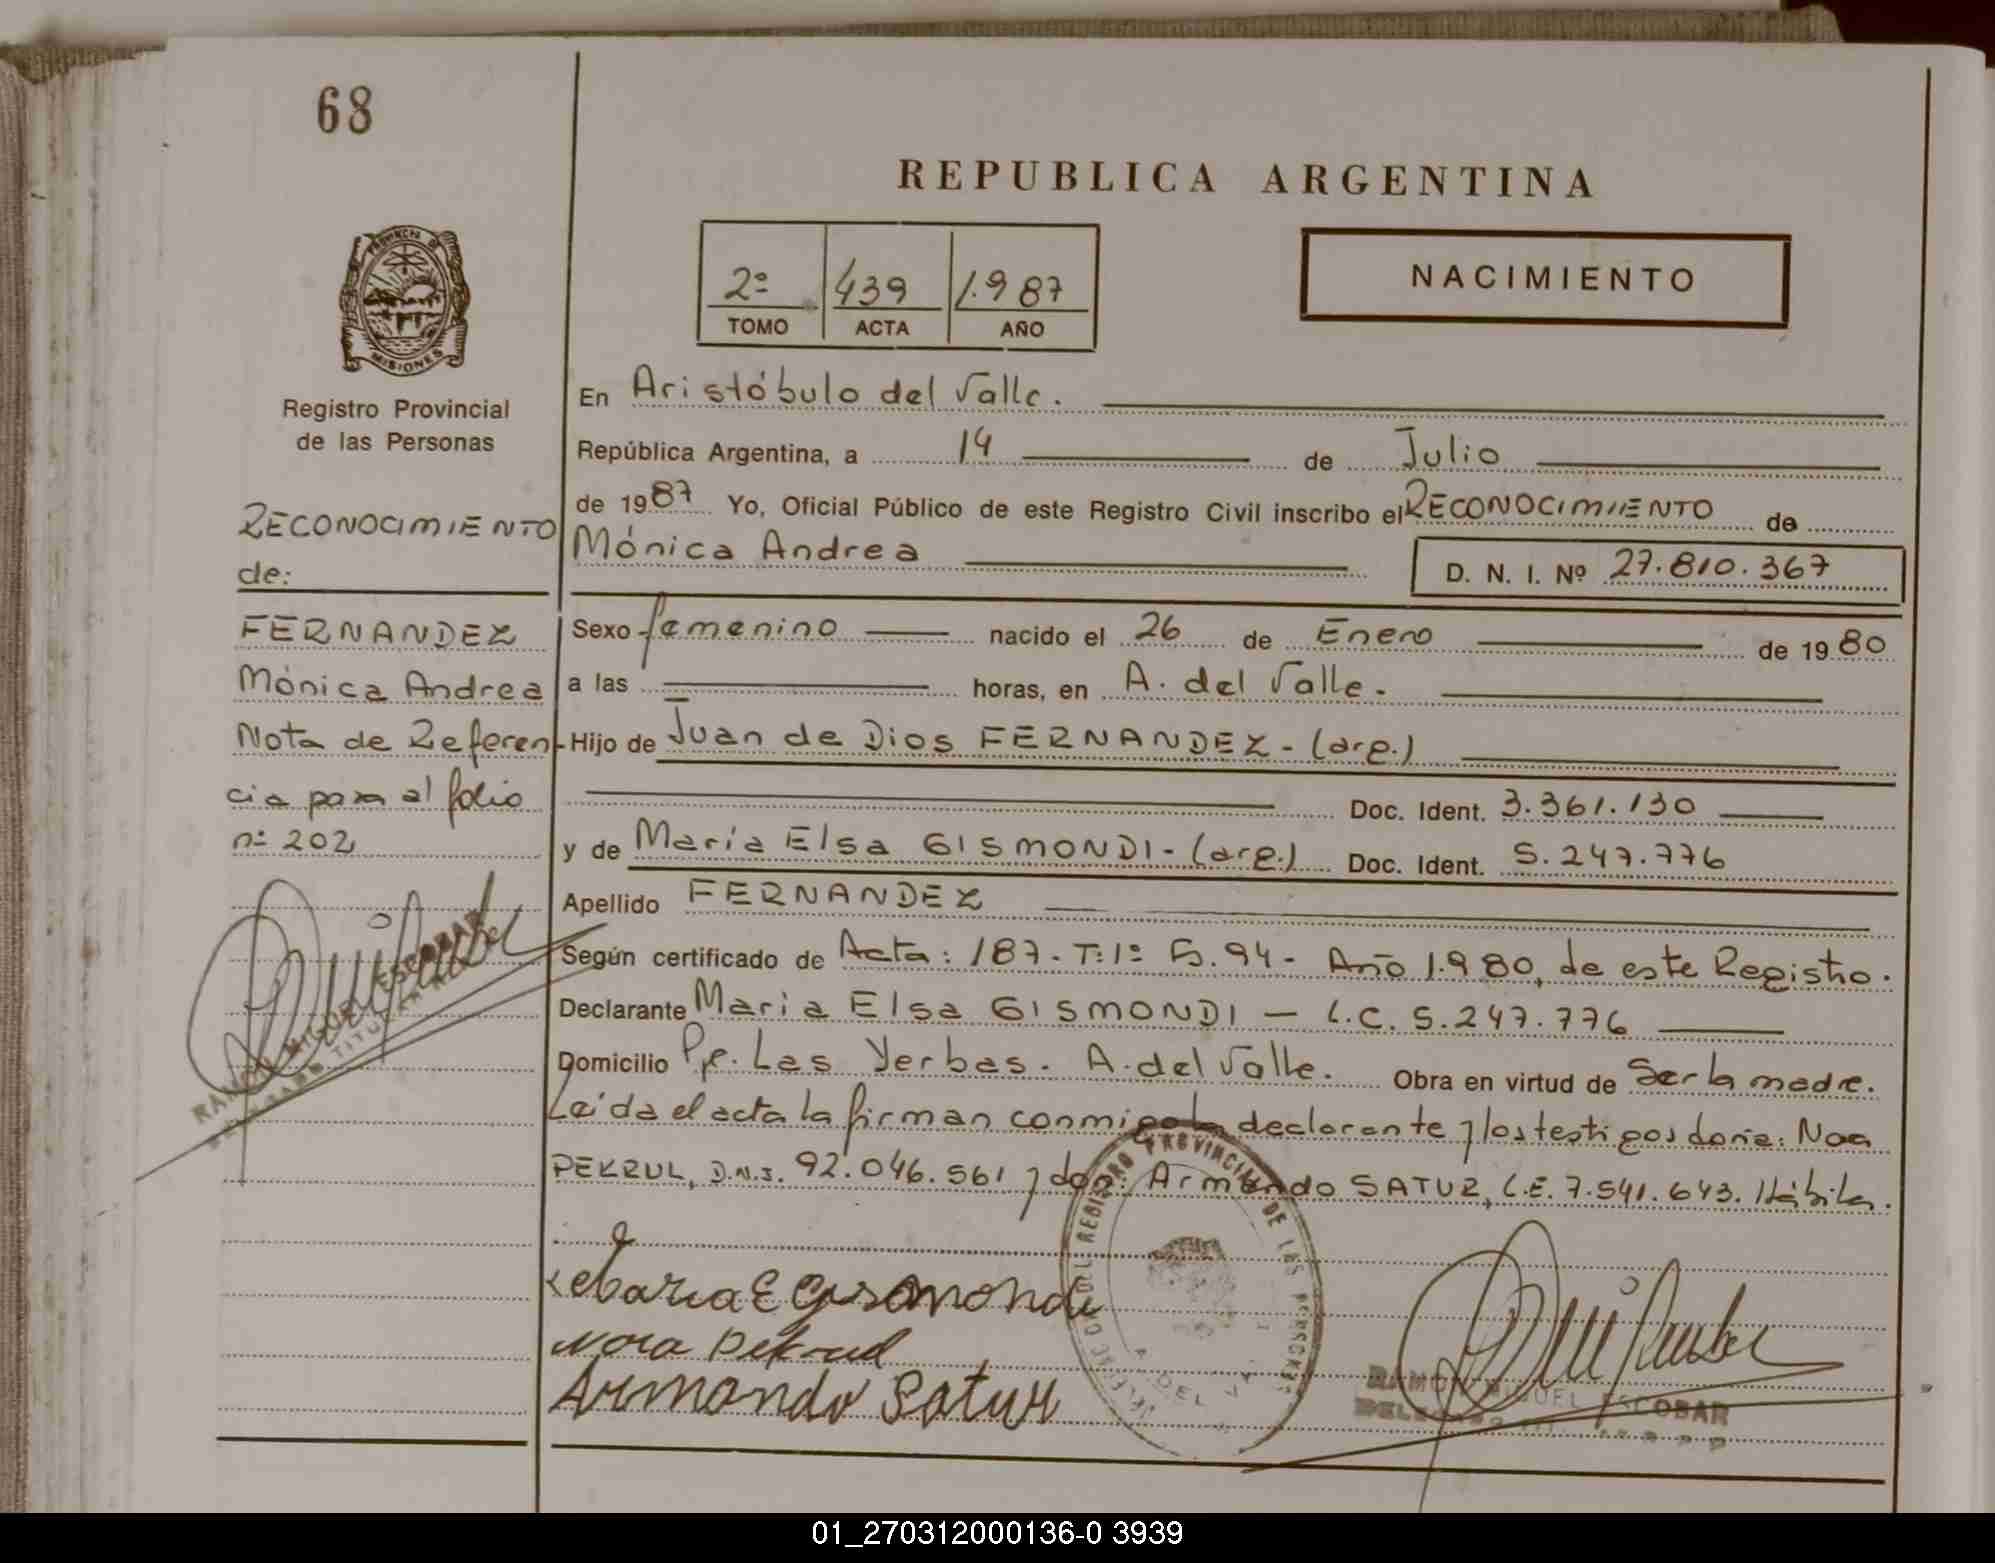 68
REPUBLICA ARGENTINA
2º 439 1.987
TOMO ACTA AÑO
NACIMIENTO
PROVINCIA DE MISIONES
Registro Provincial
de las Personas
RECONOCIMIENTO
de:
FERNANDEZ
Mónica Andrea
Nota de Referen-
cia para al folio
nº 202
RAMON MIGUEL ESCOBAR
En Aristóbulo del Valle.
República Argentina, a 14 de Julio
de 1987 Yo, Oficial Público de este Registro Civil inscribo el RECONOCIMIENTO de
Mónica Andrea D. N. I. Nº 27.810.367
Sexo femenino nacido el 26 de Enero de 1980
a las horas, en A. del Valle.
Hijo de Juan de Dios FERNANDEZ - (arg.)
Doc. Ident. 3.361.130
y de María Elsa GISMONDI - (arg.) Doc. Ident. 5.247.776
Apellido FERNANDEZ
Según certificado de Acta: 187 - T: 1º Fo. 94 - Año 1.980, de este Registro.
Declarante Maria Elsa GISMONDI — L.C. 5.247.776
Domicilio Pje. Las Yerbas. A. del Valle. Obra en virtud de Ser la madre.
Leída el acta la firman conmigo la declarante y los testigos doña: Noa
PEKRUL, D.N.I. 92.046.561 y don: Armando SATUR, L.E. 7.541.643. Hábiles.
Maria E Gismondi
Nora Pekrul
Armando Satur
REGISTRO PROVINCIAL DE LAS PERSONAS
RAMON MIGUEL ESCOBAR
01_270312000136-0 3939